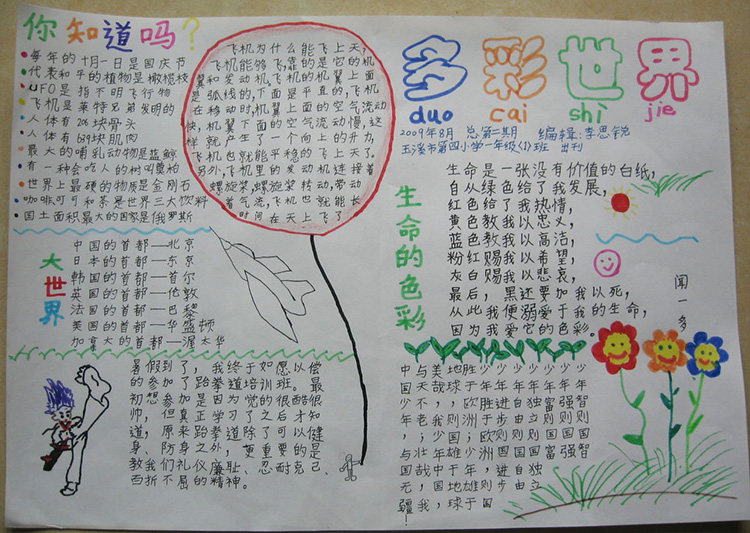 你知道吗？
每年的十月一日是国庆节
代表和平的植物是橄榄枝
UFO是指不明飞行物
飞机是莱特兄弟发明的
人体有206块骨头
人体有639块肌肉
最大的哺乳动物是蓝鲸
有一种会吃人的树叫奠柏
世界上最硬的物质是金刚石
咖啡可可和茶是世界三大饮料
国土面积最大的国家是俄罗斯
飞机为什么能飞上天？
飞机能够飞，靠的是它的机
翼和发动机。飞机的机翼上面
是弧线的，下面是平直的，飞机
在移动时，机翼上面的空气流动
快，机翼下面的空气流动慢，这
样就产生了一个向上的升力，
飞机也就能平稳的飞上天了。
另外，飞机里的发动机连接着
螺旋桨，螺旋桨转动，带动
着气流，飞机也就能长
时间在天上飞了。
大世界
中国的首都——北京
日本的首都——东京
韩国的首都——首尔
英国的首都——伦敦
法国的首都——巴黎
美国的首都——华盛顿
加拿大的首都——渥太华
暑假到了，我终于如愿以偿
的参加了跆拳道培训班。最
初想参加是因为觉的很酷很
帅，但真正学习了之后才知
道，原来跆拳道除了可以健
身、防身之外，更重要的是
教我们礼仪廉耻、忍耐克己、
百折不屈的精神。
多彩世界
duo cai shì jie
2009年8月 总第二期 编辑：李思锐
玉溪市第四小学一年级（1）班 出刊
生命的色彩
生命是一张没有价值的白纸，
自从绿色给了我发展，
红色给了我热情，
黄色教我以忠义，
蓝色教我以高洁，
粉红赐我以希望，
灰白赐我以悲哀，
最后，黑还要加我以死，
从此我便溺爱于我的生命，
因为我爱它的色彩。
闻一多
少年智则国智
少年强则国强
少年富则国富
少年独立则国独立
少年自由则国自由
少年进步则国进步
少年胜于欧洲，则国
胜于欧洲；少年雄于
地球，则国雄于地球
美哉，我少年中国，
与天不老；壮哉，我
中国少年，与国无疆！